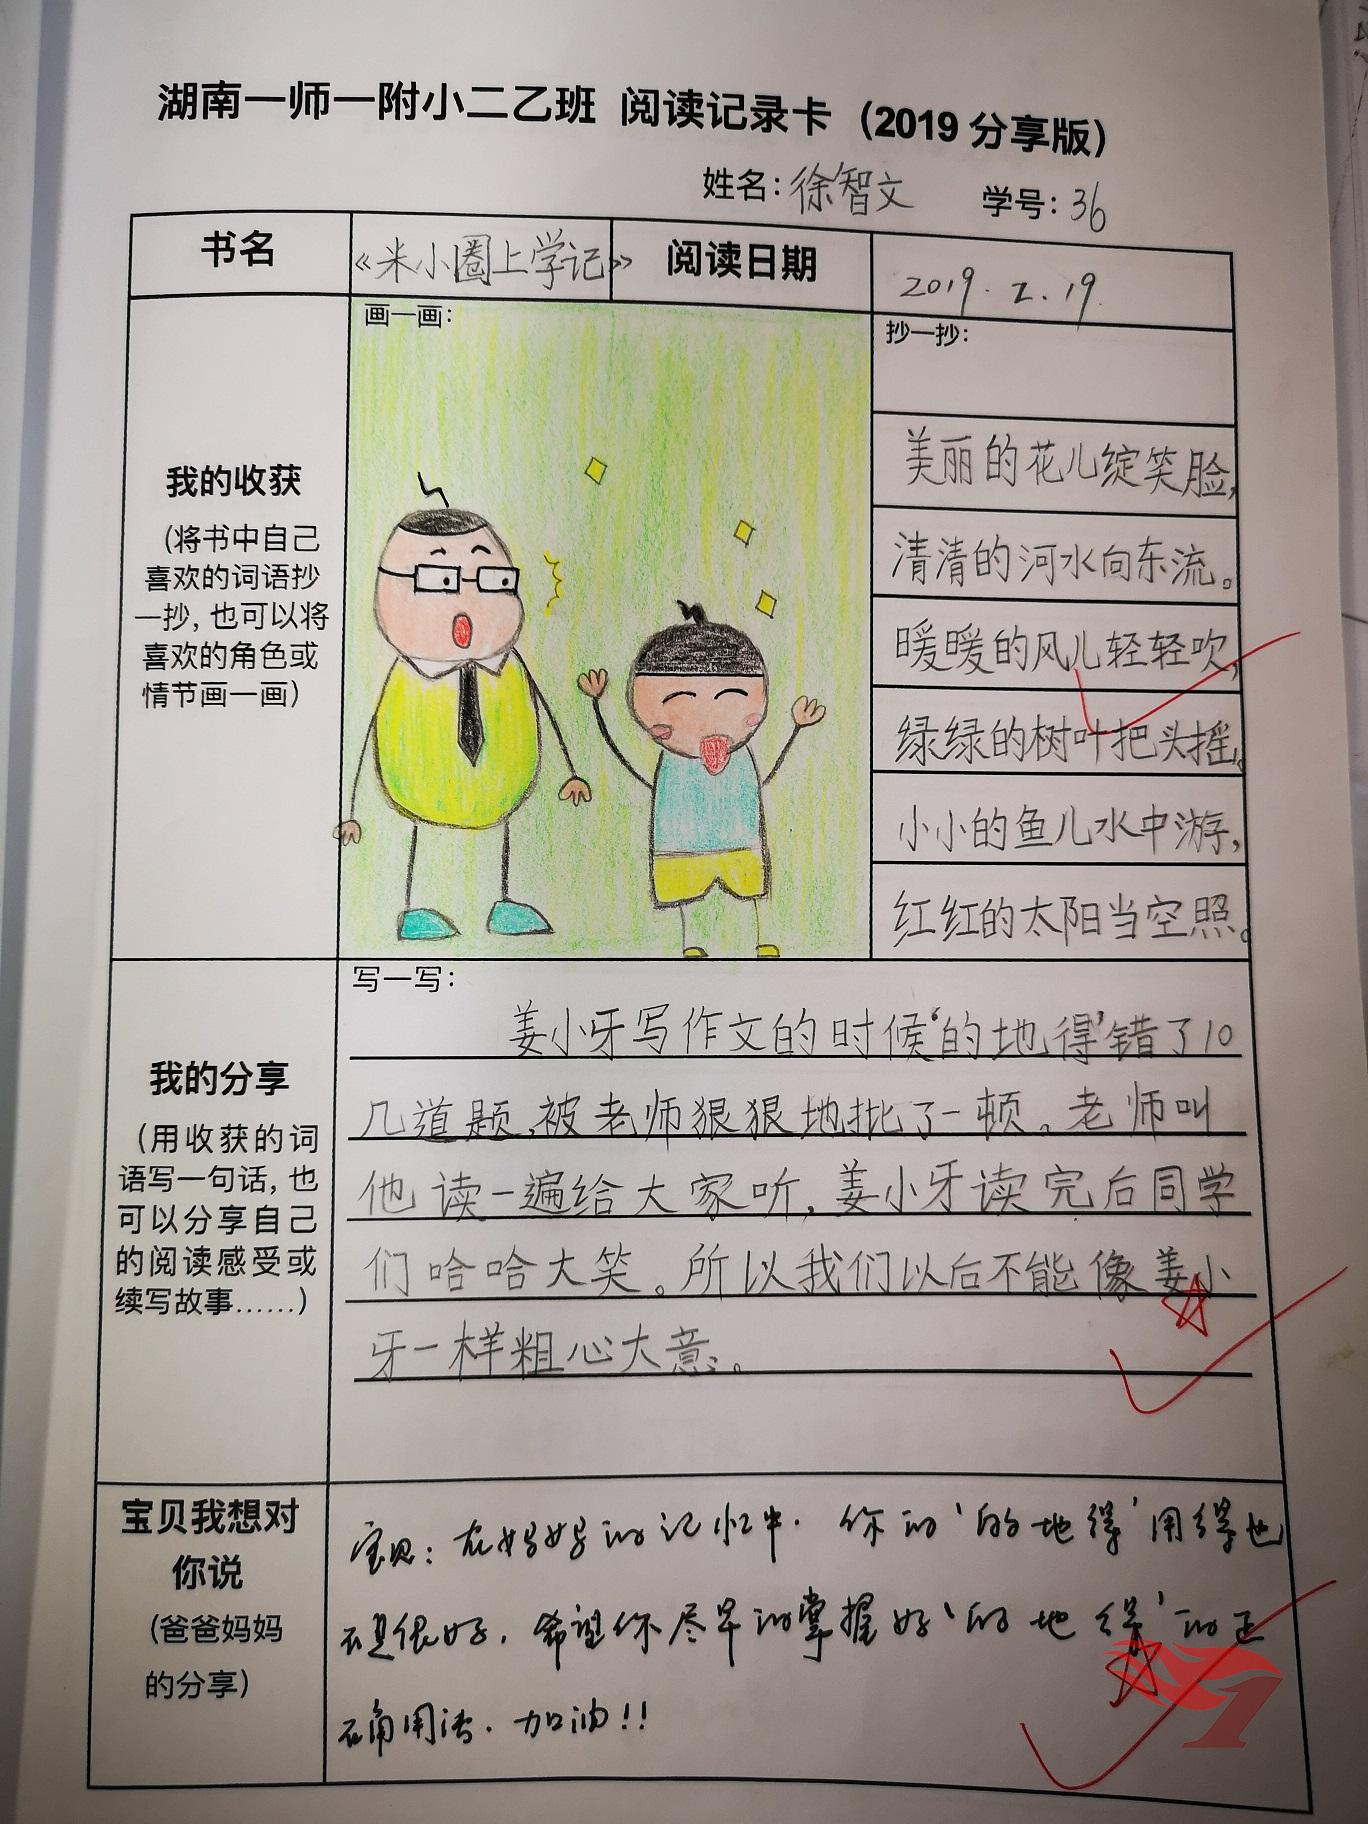 湖南一师一附小二乙班 阅读记录卡（2019分享版）
姓名：徐智文 学号：36
书名 《米小圈上学记》 阅读日期 2019.2.19.
我的收获
（将书中自己
喜欢的词语抄
一抄，也可以将
喜欢的角色或
情节画一画）
画一画：
抄一抄：
美丽的花儿绽笑脸，
清清的河水向东流。
暖暖的风儿轻轻吹，
绿绿的树叶把头摇。
小小的鱼儿水中游，
红红的太阳当空照。
我的分享
（用收获的词
语写一句话，也
可以分享自己
的阅读感受或
续写故事……）
写一写：
姜小牙写作文的时候‘的地得’错了10
几道题，被老师狠狠地批了一顿。老师叫
他读一遍给大家听，姜小牙读完后同学
们哈哈大笑。所以我们以后不能像姜小
牙一样粗心大意。
宝贝我想对
你说
（爸爸妈妈
的分享）
宝贝：在妈妈的记忆中，你的‘的地得’用得也
不是很好，希望你尽早的掌握好‘的地得’的正
确用法，加油！！
1